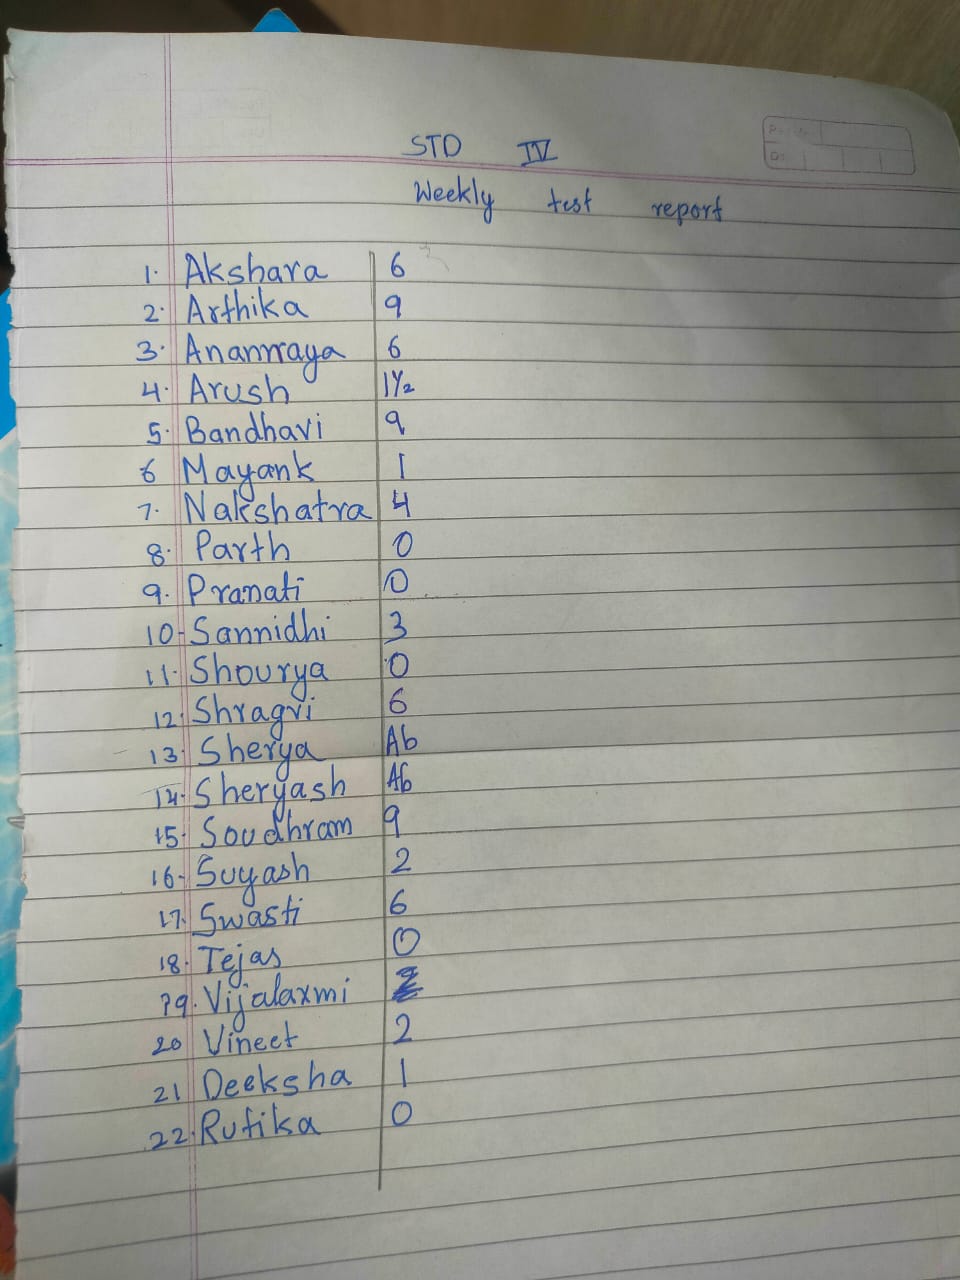 STD IV
Weekly test report
1. Akshara 6
2. Arthika 9
3. Ananraya 6
4. Arush 1½
5. Bandhavi 9
6 Mayank 1
7. Nakshatra 4
8. Parth 0
9. Pranati 0
10. Sannidhi 3
11. Shourya 0
12. Shragvi 6
13. Sherya Ab
14. Sheryash Ab
15. Soudhram 9
16. Suyash 2
17. Swasti 6
18. Tejas 0
19. Vijalaxmi
20 Vineet 2
21 Deeksha 1
22. Rutika 0